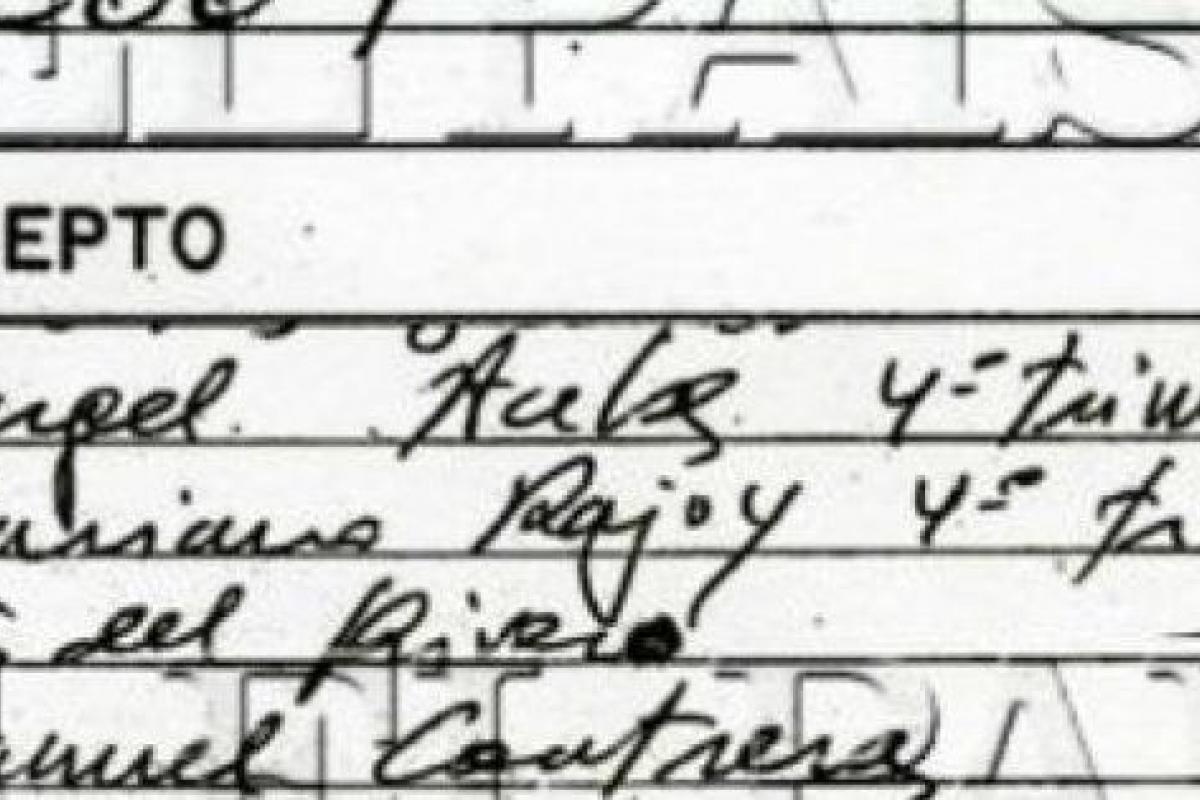 EPTO
ngel Acebes 4º trim
ariano Rajoy 4º tr
del Rivero
anuel Contreras